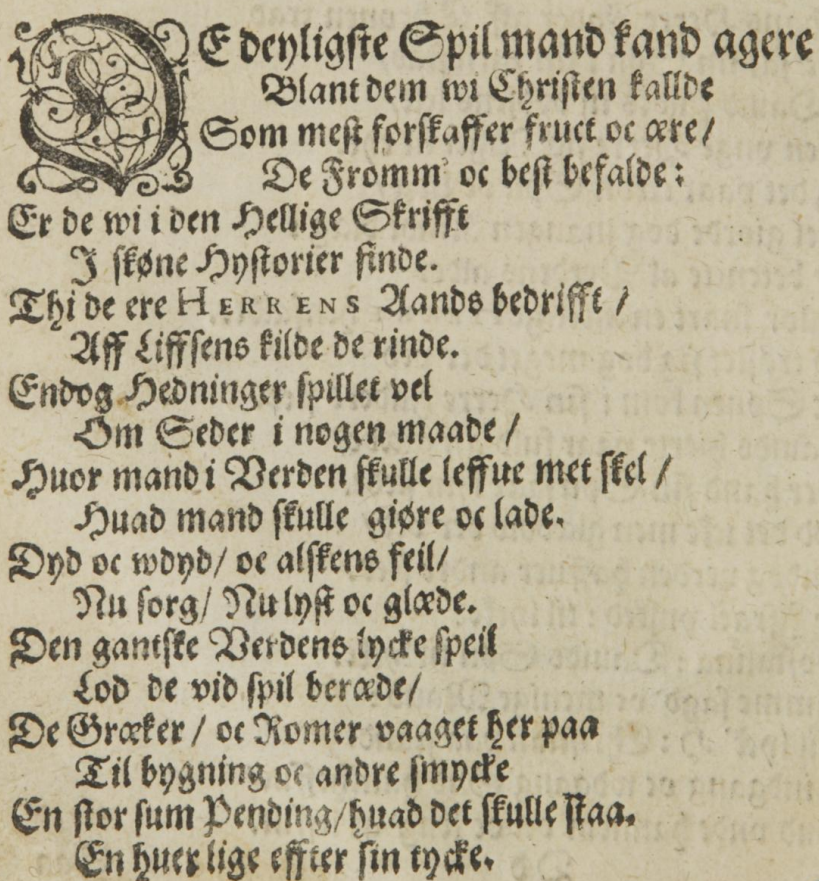 DE deyligste Spil mand kand agere
Blant dem wi Christen kallde
Som mest forskaffer fruct oc ære/
De Fromm' oc best befalde:
Er de wi i den Hellige Skrifft
J skøne Hystorier finde.
Thi de ere HERRENS Aands bedrifft /
Aff Liffsens kilde de rinde.
Endog Hedninger spillet vel
Om Seder i nogen maade /
Huor mand i Verden skulle leffue met skel /
Huad mand skulle giøre oc lade.
Dyd oc wdyd/ oc alskens feil/
Nu sorg/ Nu lyst oc glæde.
Den gantske Verdens lycke speil
Lod de vid spil beræde/
De Græker / oc Romer vaaget her paa
Til bygning oc andre smycke
En stor sum Pending/huad det skulle staa.
En huer lige effter sin tycke.